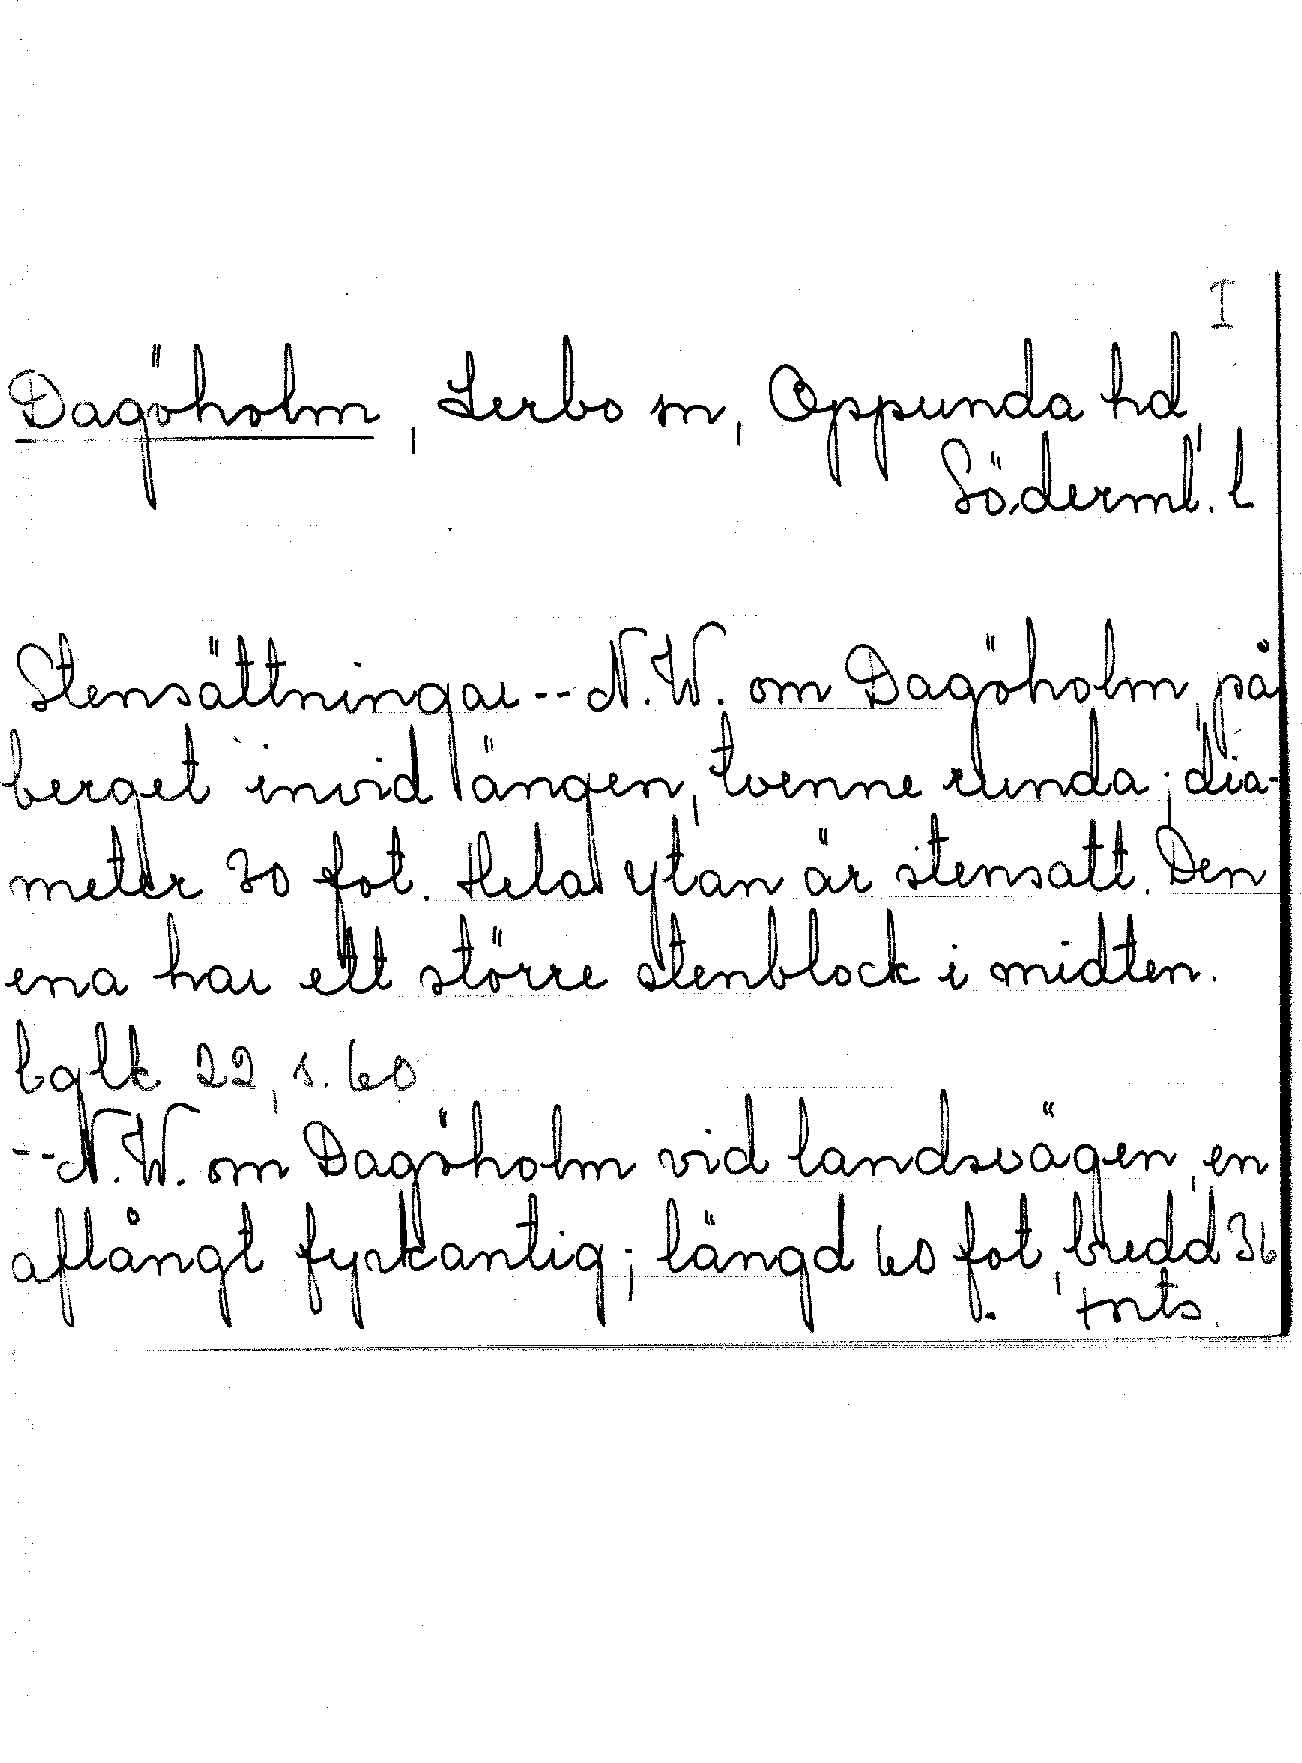 I
Dagöholm, Lerbo sn, Oppunda hd,
Söderml. l
Stensättningar -- N.W. om Dagöholm, på
berget invid ängen, tvenne runda; dia-
meter 30 fot. Hela ytan är stensatt. Den
ena har ett större stenblock i midten.
bglk 22, s. 60
-- N.W. om Dagöholm vid landsvägen, en
aflångt fyrkantig; längd 60 fot, bredd 36
forts.